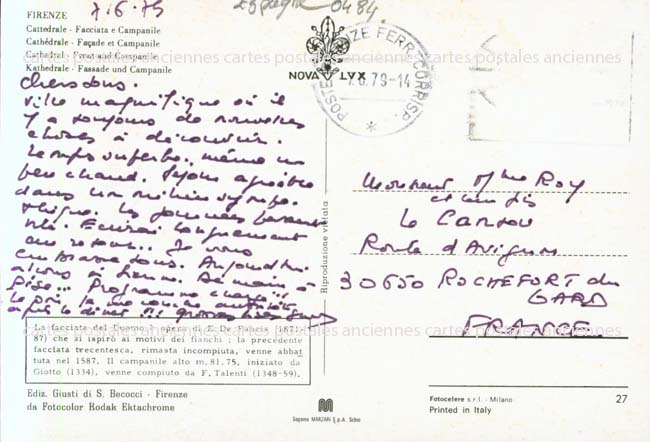 7.6.79
espagne 0484
FIRENZE
Cattedrale - Facciata e Campanile
Cathédrale - Façade et Campanile
Cathedral - Front and Campanile
Kathedrale - Fassade und Campanile
NOVA LVX
POSTE FIRENZE FERR. CORRISP.
7.6.79-14
cartes postales anciennes cartes postales anciennes cartes postales anciennes
chers tous.
ville magnifique où il
y a toujours de nouvelles
choses à découvrir.
Temps superbe, même un
peu chaud. Séjour agréable
dans un milieu sympa-
thique. Les journées passent
vite. Ecrirai longuement
au retour. Je vous
embrasse tous. Aujourd'hui
allons à Sienne. Demain à
Pise... Programme chargé...
le soir la
après le dîner !! grosses bises
Monsieur Mme Roy
et
Le
Route d'Avignon
30650 ROCHEFORT du
GARD
FRANCE
Riproduzione vietata
cartes postales anciennes cartes postales anciennes cartes postales anciennes
La facciata del Duomo, opera di E. De Fabris (1871-
87) che si ispirò ai motivi dei fianchi ; la precedente
facciata trecentesca, rimasta incompiuta, venne abbat
tuta nel 1587. Il campanile alto m. 81.75, iniziato da
Giotto (1334), venne compiuto da F. Talenti (1348-59).
Ediz. Giusti di S. Becocci - Firenze
da Fotocolor Kodak Ektachrome
Sapone MARZARI S.p.A. Schio
Fotocelere s.r.l. - Milano
27
Printed in Italy